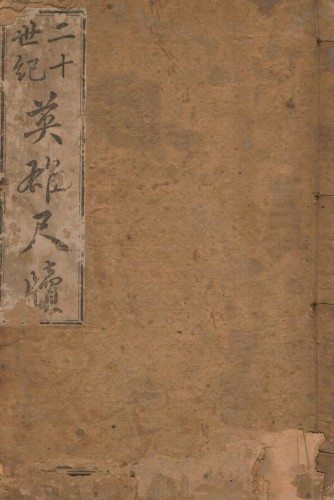 二十
世紀
英雄尺牘